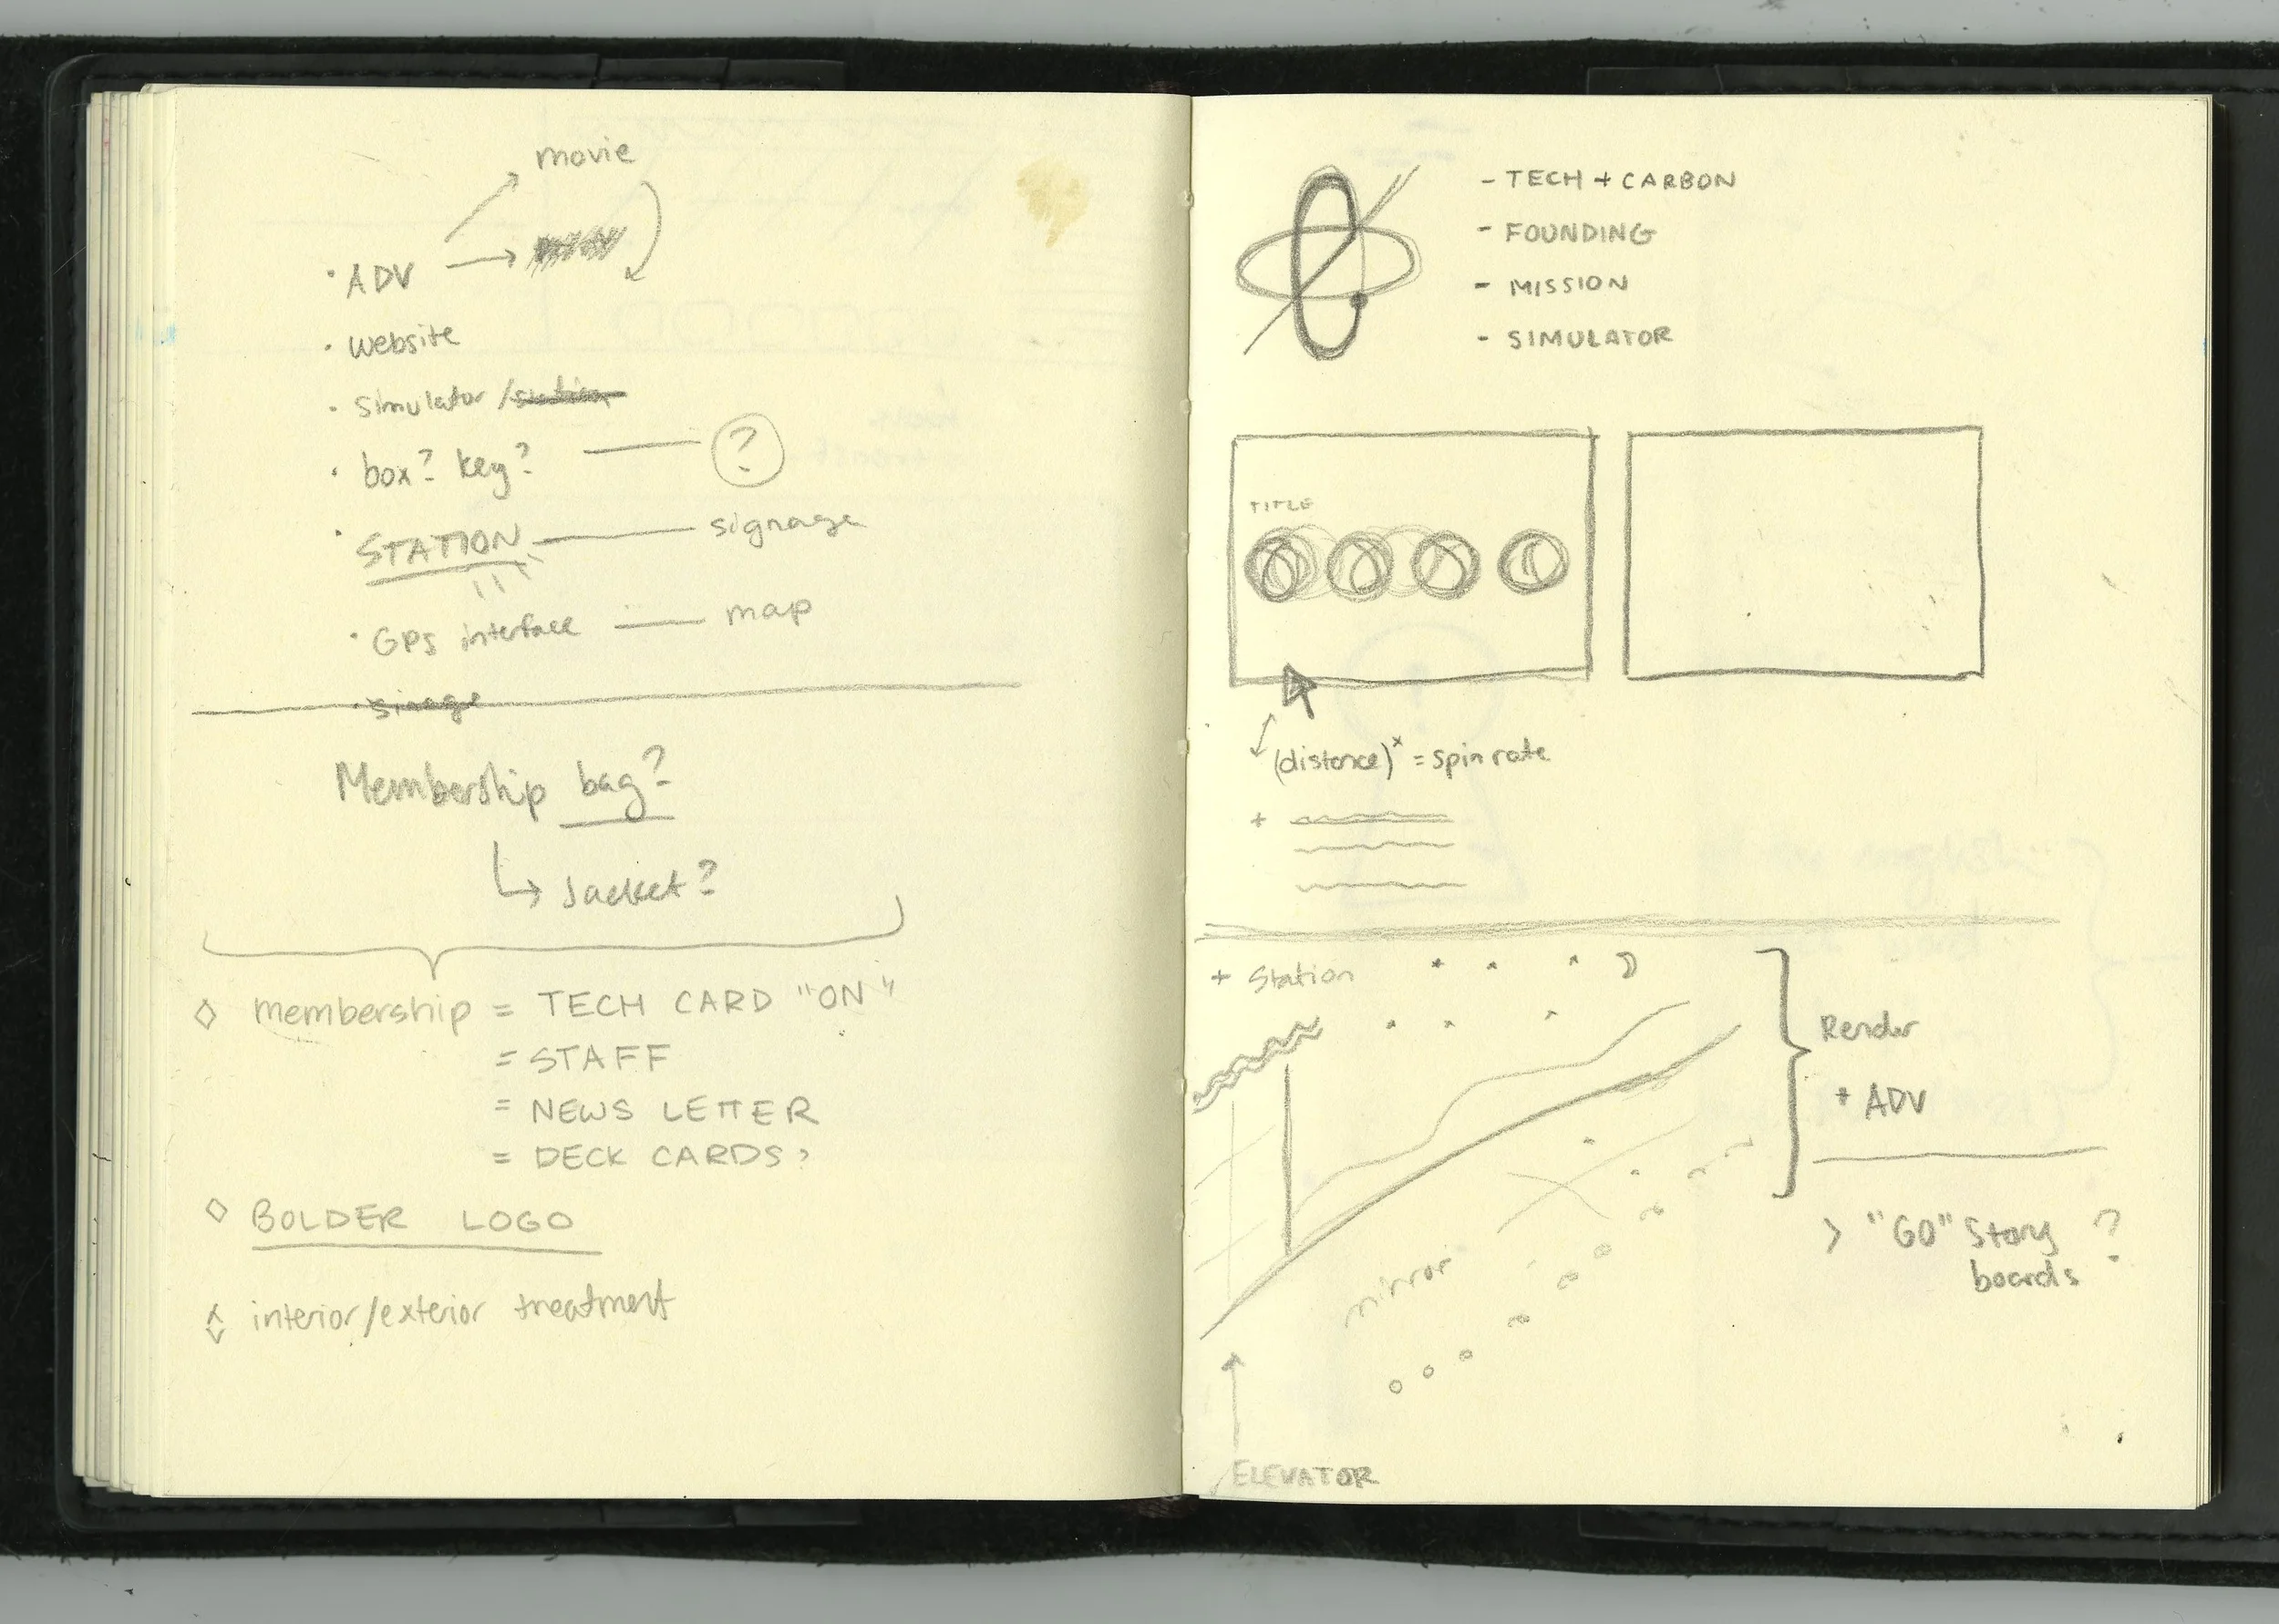 movie
· ADV
· website
· simulator /station
· box? key? ?
· STATION signage
· GPS interface map
· sinage
Membership bag?
Jacket?
◇ membership = TECH CARD "ON"
= STAFF
= NEWS LETTER
= DECK CARDS?
◇ BOLDER LOGO
◇ interior/exterior treatment
- TECH + CARBON
- FOUNDING
- MISSION
- SIMULATOR
TITLE
(distance)ˣ = spin rate
+
+ Station
Render
+ ADV
mirror
> "GO" Story boards ?
ELEVATOR